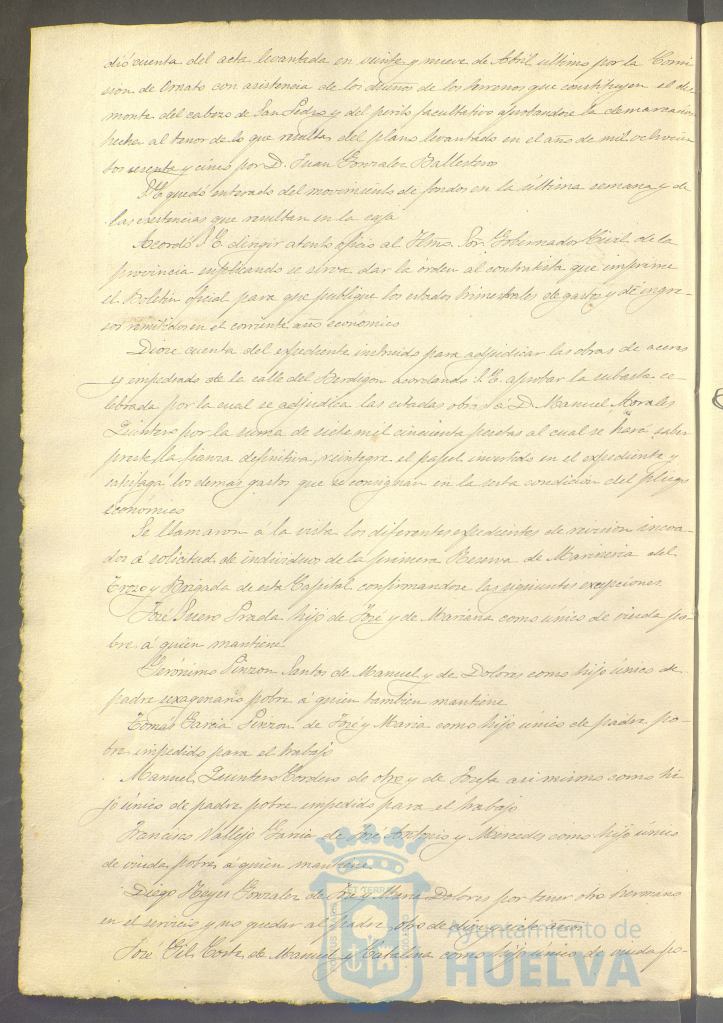 dió cuenta del acta levantada en veinte y nueve de Abril último por la Comi
sion de Ornato con asistencia de los dueños de los terrenos que constituyen el des
monte del cabezo de San Pedro y del perito facultativo ajustandose la demarcacion
hecha al tenor de lo que resulta del plano levantado en el año de mil ochocien
tos sesenta y cinco por D. Juan Gonzalez Ballesteros
S. E. quedó enterado del movimiento de fondos en la última semana y de
las existencias que resultan en la caja
Acordó S. E. dirigir atento oficio al Iltmo. Sor. Gobernador Civil de la
provincia suplicando se sirva dar la órden al contratista que imprime
el Boletin oficial para que publique los estados trimestrales de gastos y de ingre-
sos remitidos en el corriente año económico
Diose cuenta del expediente instruido para adjudicar las obras de aceras
y empedrado de la calle del Berdigon acordando S. E. aprobar la subasta ce-
lebrada por la cual se adjudica las citadas obras á D. Manuel Morales
Quintero por la suma de siete mil cincuenta pesetas al cual se hará saber
preste la fianza definitiva, reintegre el papel invertido en el expediente y
satisfaga los demas gastos que se consignan en la sesta condicion del pliego
económico
Se llamaron á la vista los diferentes expedientes de revision incoa-
dos á solicitud de individuos de la primera Reserva de Marineria del
Trozo y Brigada de esta Capital confirmandose las siguientes excepciones
José Suero Prada hijo de José y de Mariana como único de viuda po-
bre á quien mantiene
Gerónimo Pinzon Santos de Manuel y de Dolores como hijo único de
padre sexagenario pobre á quien tambien mantiene
Tomás Garcia Pinzon de José y Maria como hijo único de padre po-
bre impedido para el trabajo
Manuel Quintero Cordero de otro y de Josefa asi mismo como hi-
jo único de padre pobre impedido para el trabajo
Francisco Vallejo Garcia de José Antonio y Mercedes como hijo único
de viuda pobre á quien mantiene
Diego Reyes Gonzalez de José y Maria Dolores por tener otro hermano
en el servicio y no quedar al padre otro de diez y siete años
José Gil Corte de Manuel y Catalina como hijo único de viuda po-
Ayuntamiento de
HUELVA